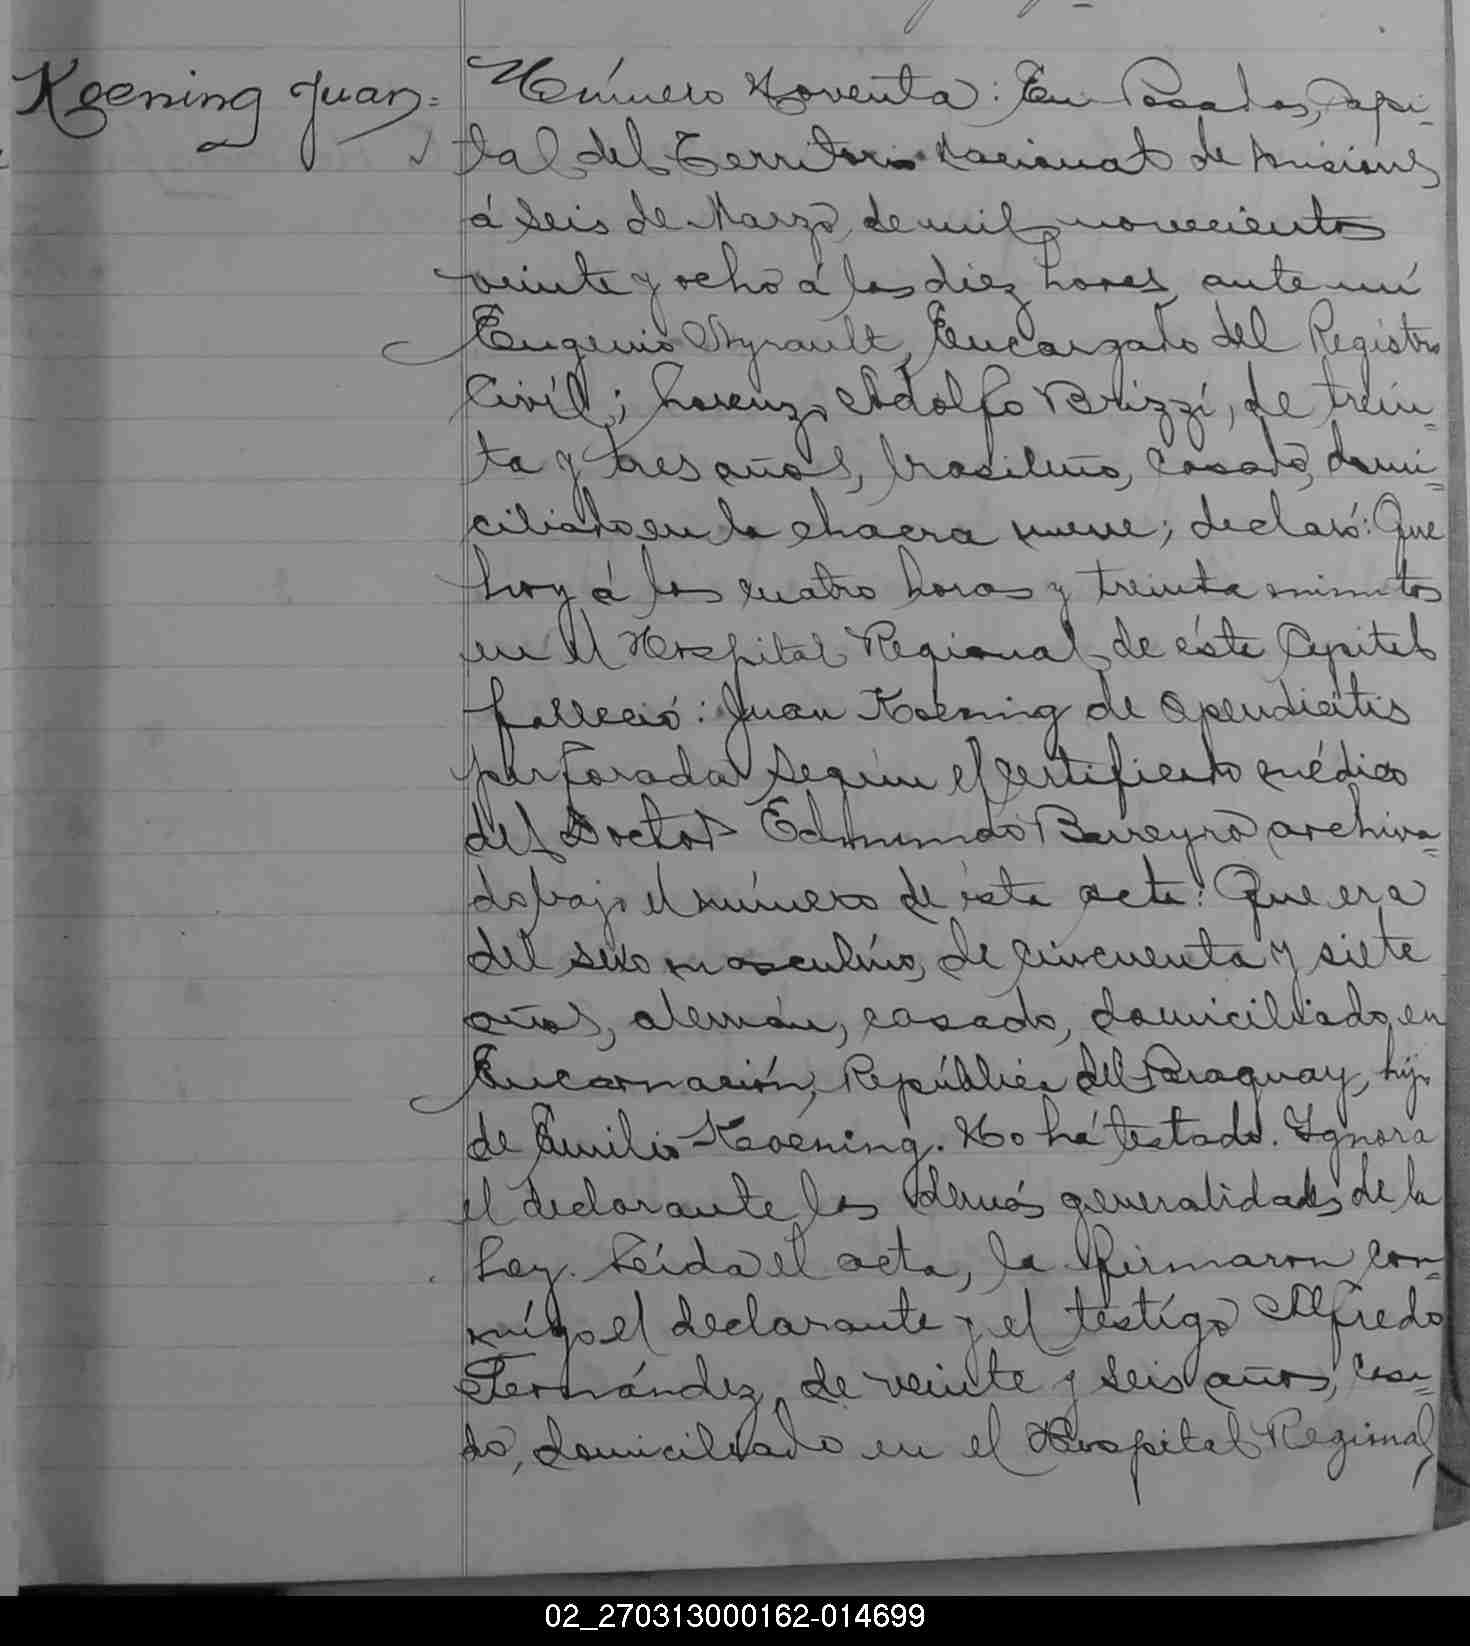 Koening Juan=
Número Noventa: En Posadas, Capi-
tal del Territorio Nacional de Misiones
á seis de Marzo, de mil novecientos
veinte y ocho á las diez horas, ante mí
Eugenio Ayrault, Encargado del Registro
Civíl; Lorenzo Adolfo Brizzí, de trein=
ta y tres años, brasileño, casado, domi=
ciliado en la chacra nueve; declaró: Que
hoy á las cuatro horas y treinta minutos
en el Hospital Regional de ésta Capital
falleció: Juan Koening de apendicitis
perforada según el certificado médico
del Doctor Edmundo Barreyro archiva=
do bajo el número de ésta acta: Que era
del sexo masculino, de cincuenta y siete
años, alemán, casado, domiciliado en
Encarnación, República del Paraguay, hijo
de Emilio Koening. No há testado. Ignora
el declarante las demás generalidades de la
Ley. Leída el acta, la firmaron con=
migo el declarante y el testígo Alfredo
Fernández, de veinte y seis años, casa=
do, domiciliado en el Hospital Regional,
02_270313000162-014699